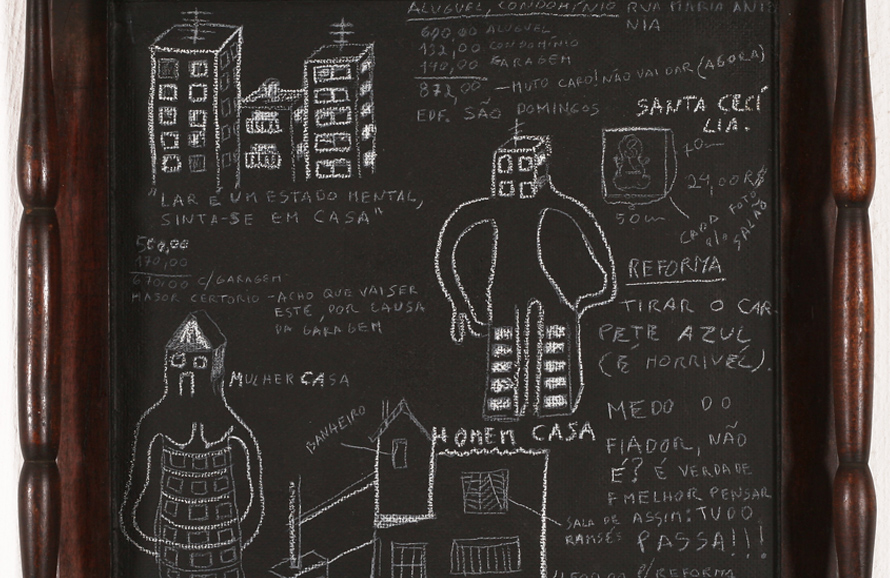 ALUGUEL, CONDOMÍNIO RUA MARIA ANTO
NIA
600,00 ALUGUEL
132,00 CONDOMÍNIO
140,00 GARAGEM
872,00 — MUTO CARO! NÃO VAI DAR (AGORA)
EDF. SÃO DOMINGOS
SANTA CECÍ
LIA.
"LAR É UM ESTADO MENTAL,
SINTA-SE EM CASA"
24,00 R$
50cm
CADA FOTO
P/O SALÃO
500,00
170,00
670,00 C/GARAGEM
MAJOR CERTORIO - ACHO QUE VAI SER
ESTE, POR CAUSA
DA GARAGEM
REFORMA
TIRAR O CAR-
PETE AZUL
(É HORRIVEL).
MULHER CASA
BANHEIRO
HOMEM CASA
MEDO DO
FIADOR, NÃO
É? É VERDADE
É MELHOR PENSAR
ASSIM: TUDO
PASSA!!!
SALA DE
RAMSÉS
P/REFORMA